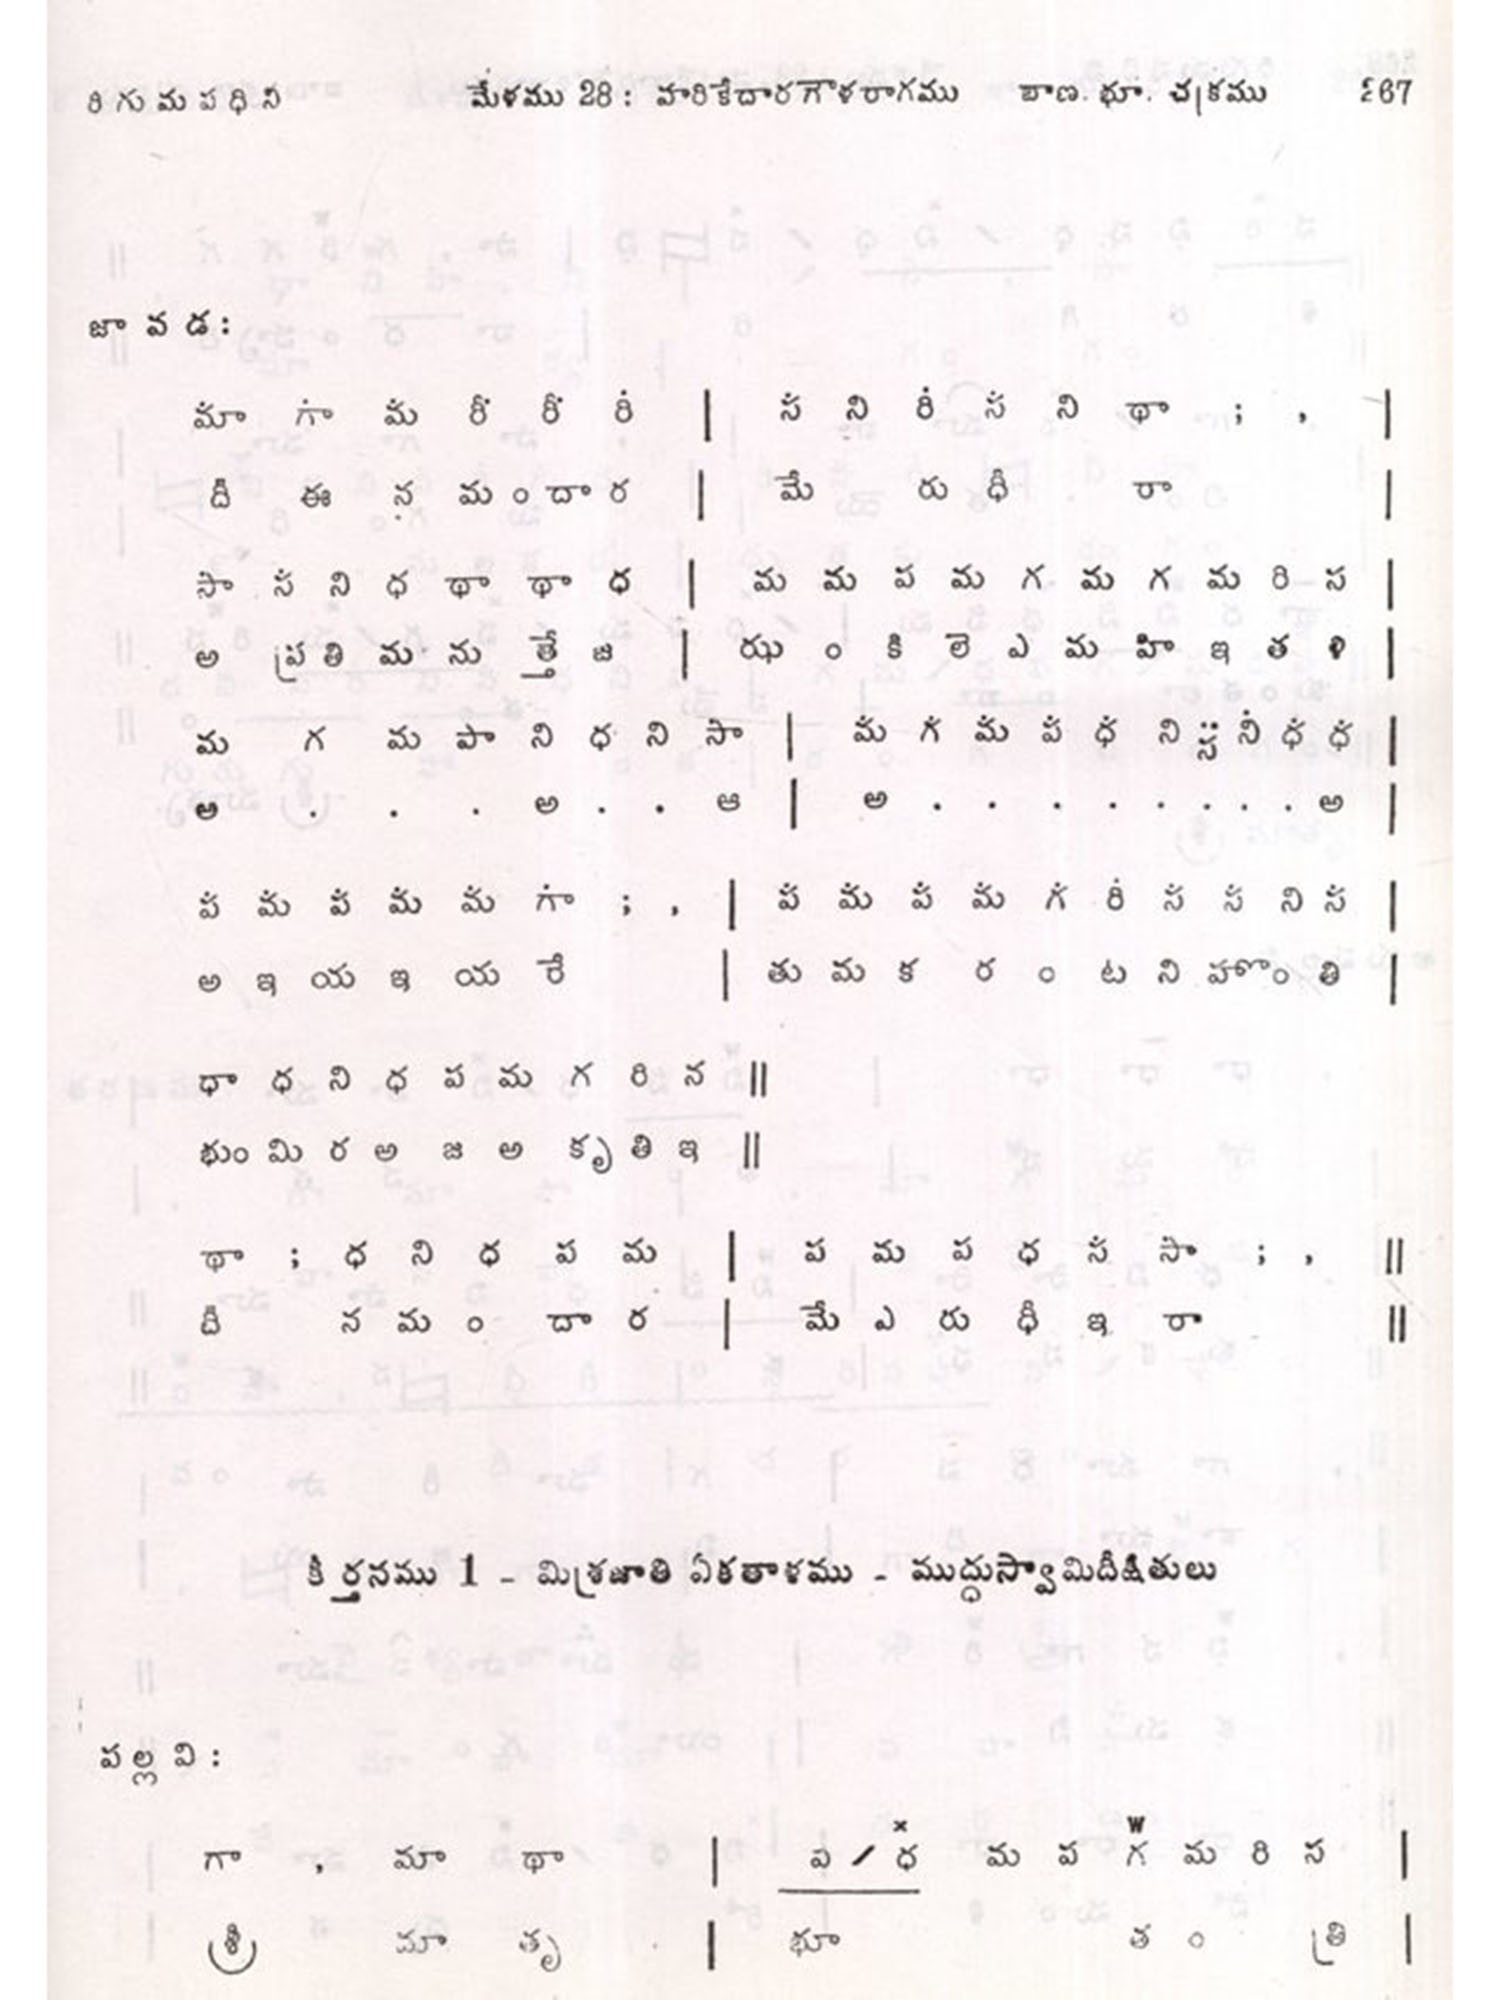 రి గు మ ప ధి ని మేళము 28 : హరికేదారగౌళరాగము బాణ. భూ. చక్రము 267
జా వ డ :
మా గా మ రీ రీ రి | స ని రి స ని ధా ; , |
దీ ఈ న మ ం దా ర | మే రు ధీ రా |
సా స ని ధ ధా ధా ధ | మ మ ప మ గ మ గ మ రి స |
అ ప్ర తి మ ను తే జ | ఝ ం కి లె ఎ మ హి ఇ త ళి |
మ గ మ పా ని ధ ని సా | మ గ మ ప ధ ని స ని ధ ధ |
అ . . . అ . . ఆ | అ . . . . . . . . అ |
ప మ ప మ మ గా ; , | ప మ ప మ గ రి స స ని స |
అ ఇ య ఇ య రే | తు మ క ర ం ట ని హొం తి |
ధా ధ ని ధ ప మ గ రి స ||
భుం మి ర అ జ అ కృ తి ఇ ||
ధా ; ధ ని ధ ప మ | ప మ ప ధ స సా ; , ||
దీ న మ ం దా ర | మే ఎ రు ధీ ఇ రా ||
కీర్తనము 1 - మిశ్రజాతి ఏకతాళము - ముద్దుస్వామిదీక్షితులు
ప ల్ల వి :
x w
గా , మా ధా | ప / ధ మ ప గ మ రి స |
శ్రీ మా తృ . | భూ త ం త్రి |